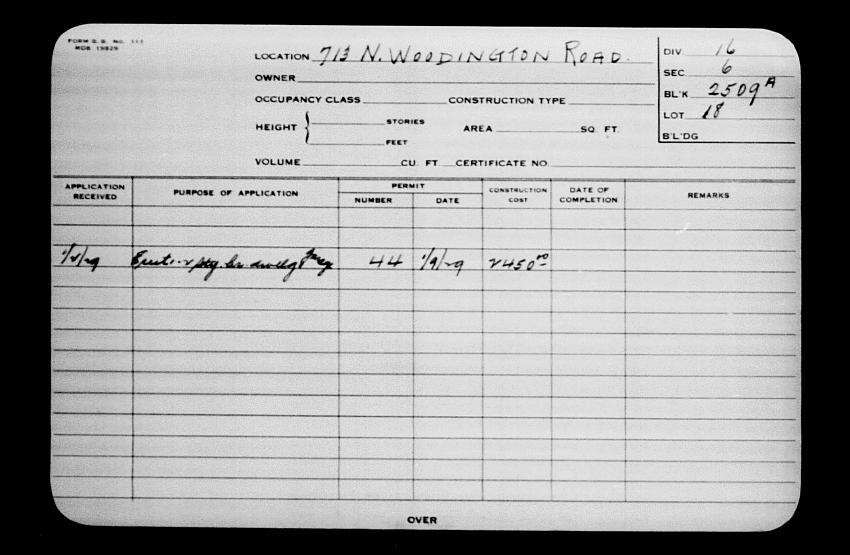 FORM S. B. No. 111
MDB 19829
LOCATION 713 N. WOODINGTON ROAD.
OWNER
OCCUPANCY CLASS CONSTRUCTION TYPE
HEIGHT { STORIES
FEET
AREA SQ. FT.
VOLUME CU. FT CERTIFICATE NO.
DIV. 16
SEC 6
BL'K 2509 A
LOT 18
B'L'DG
APPLICATION RECEIVED PURPOSE OF APPLICATION PERMIT NUMBER DATE CONSTRUCTION COST DATE OF COMPLETION REMARKS
Erect 1-2 sty. br dwellg 44 1/9/29 2450.00
OVER